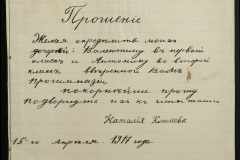 Прошеніе
Желая опредѣлить моихъ
дочерей: Валентину въ первой
классъ и Антонину во второй
классъ ввѣренной Вамъ
Прогимназіи
покорнѣйше прошу
подвергнуть ихъ испытанію
Наталія
15-го апрѣля 1911 года